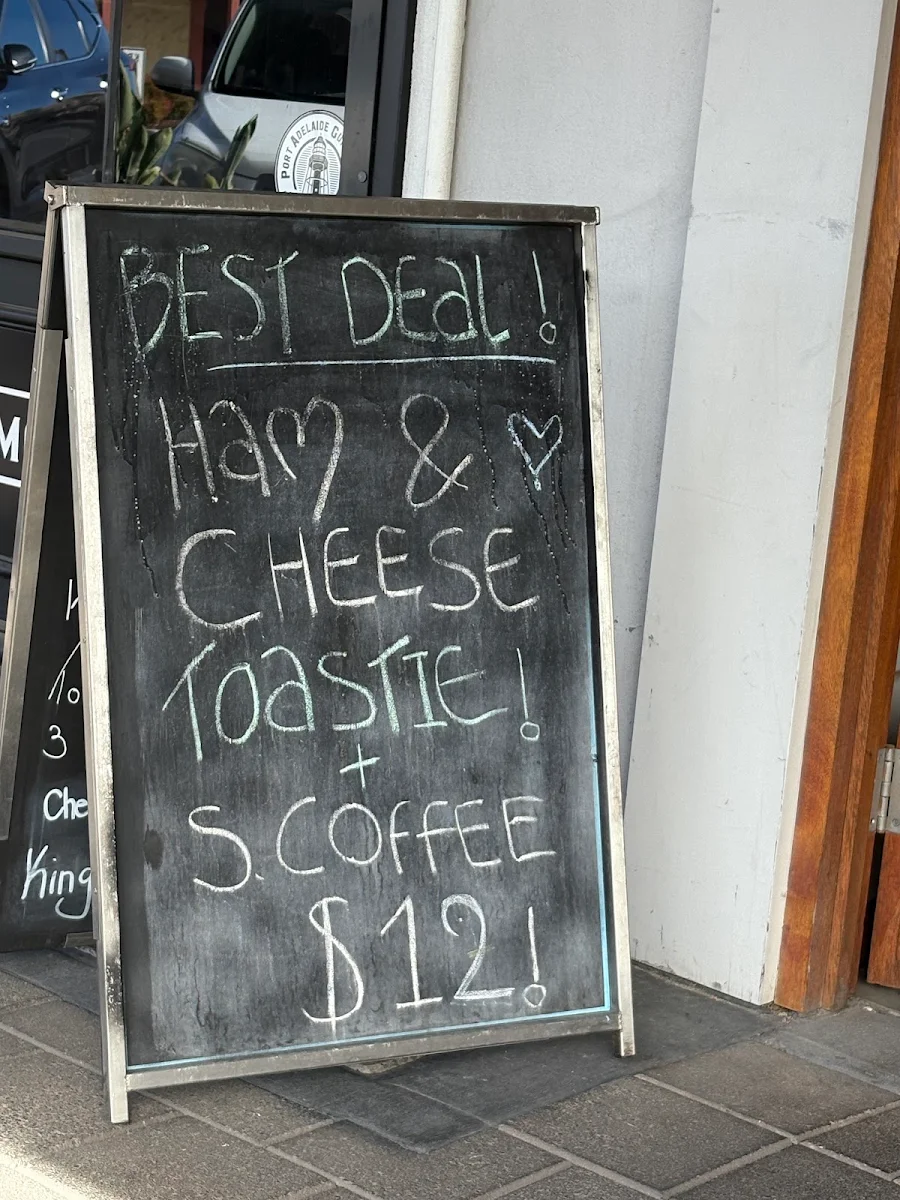 PORT ADELAIDE
BEST DEaL!
Ham & ♡
CHEESE
TOaSTIE!
+
S.COFFEE
$12!
M
3
Che
King